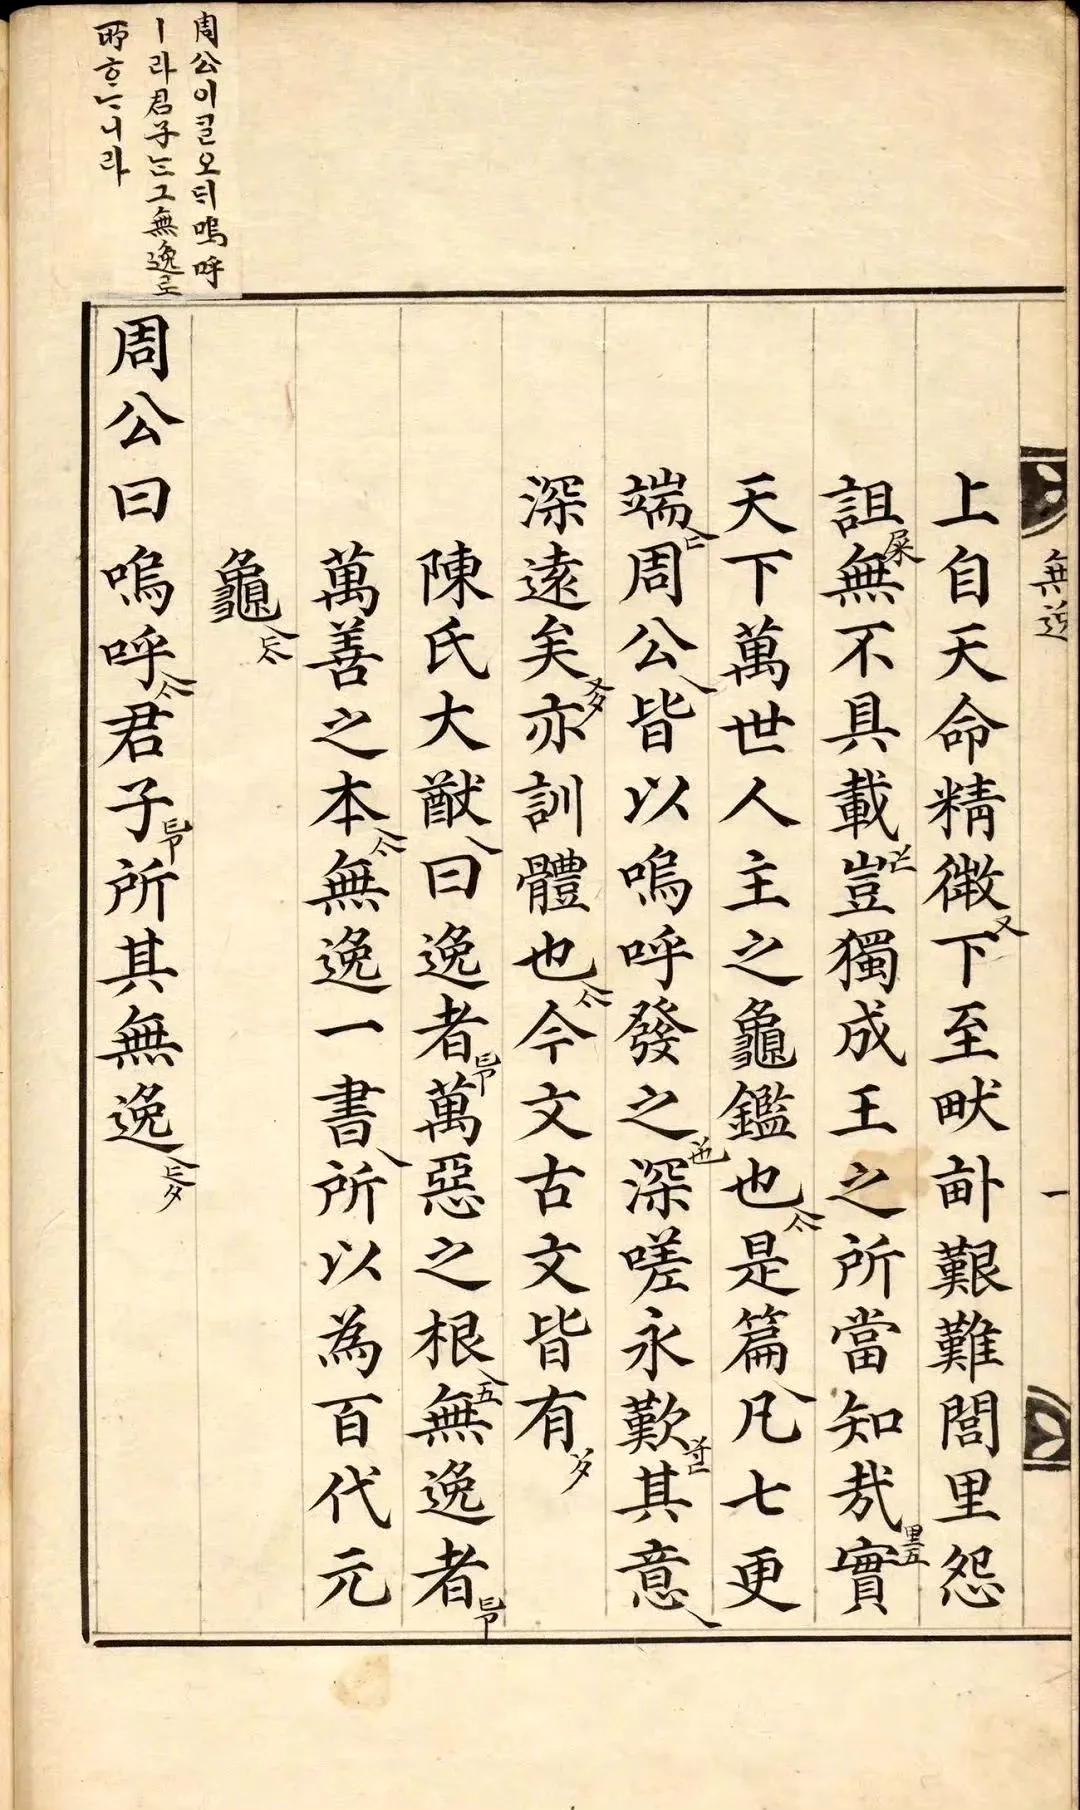 周公이ᄀᆞᆯ오ᄃᆡ嗚呼
ㅣ라君子ᄂᆞᆫ그無逸로
所ᄒᆞᄂᆞ니라
無逸
一
上自天命精微下至畎畝艱難閭里怨
詛無不具載豈獨成王之所當知哉實
天下萬世人主之龜鑑也是篇凡七更
端周公皆以嗚呼發之深嗟永歎其意
深遠矣亦訓體也今文古文皆有
陳氏大猷曰逸者萬惡之根無逸者
萬善之本無逸一書所以為百代元
龜
周公曰嗚呼君子所其無逸